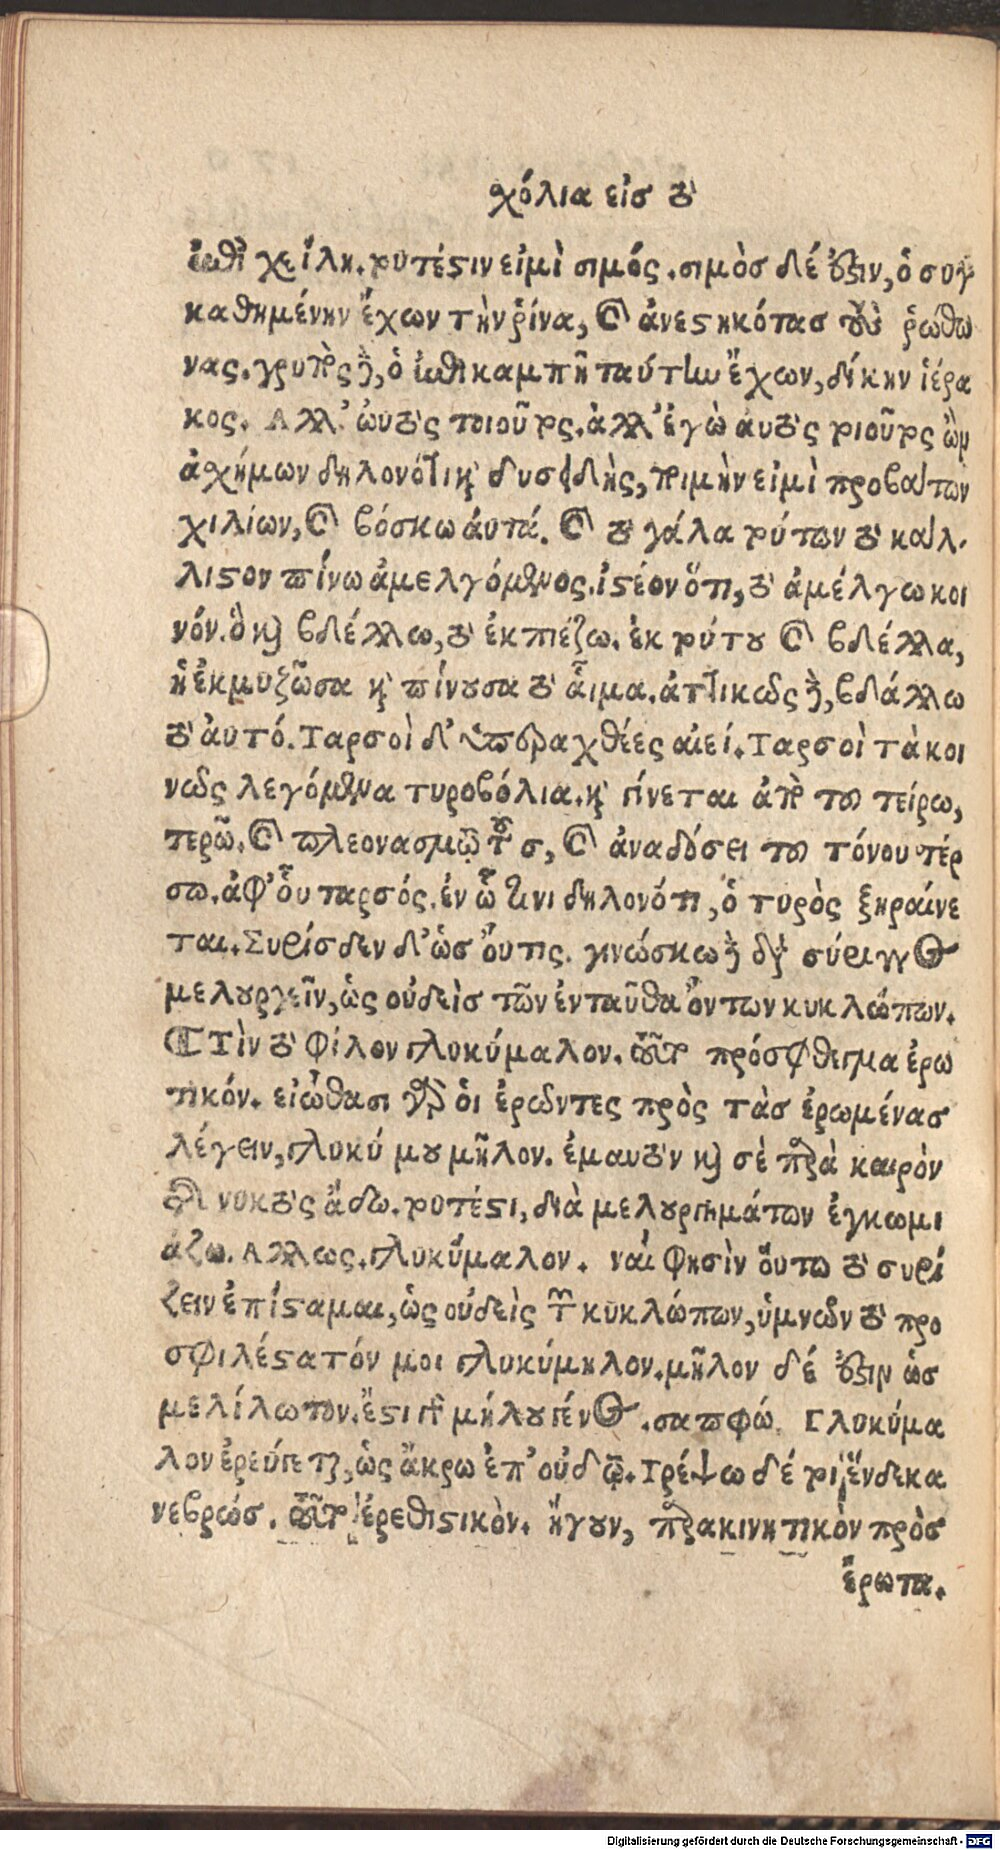 σχόλια εἰσ τὸ
ἐπὶ χείλη. τουτέστιν εἰμὶ σιμός. σιμὸσ δέ ἐστιν, ὁ συγ
καθημένην ἔχων τὴν ῥίνα, καὶ ἀνεστηκότασ τοὺς ῥώθω
νας. γρυπὸς δὲ, ὁ ἐπικαμπῆ ταύτην ἔχων, δίκην ἱέρα
κος. Αλλ' ὠυτὸς τοιοῦτος. ἀλλ' ἐγὼ ἀυτὸς τοιοῦτος ὢν
ἀσχήμων δηλονότι καὶ δυσειδὴς, ποιμὴν εἰμὶ προβάτων
χιλίων, καὶ βόσκω ἀυτά. καὶ τὸ γάλα τούτων τὸ κάλ-
λιστον πίνω ἀμελγόμενος. ἰστέον ὅτι, τὸ ἀμέλγω κοι
νόν. ὃ καὶ βδέλλω, τὸ ἐκπιέζω. ἐκ τούτου καὶ βδέλλα,
ἡ ἐκμυζῶσα καὶ πίνουσα τὸ ἇιμα. ἀττικῶς δὲ, βδάλλω
τὸ ἀυτό. Ταρσοὶ δ' ὑπεραχθέες αἰεί. Ταρσοὶ τὰ κοι
νῶς λεγόμενα τυροβόλια. καὶ γίνεται ἀπὸ του τείρω,
τερῶ. καὶ πλεονασμῷ τοῦ σ, καὶ ἀναδόσει του τόνου τέρ
σω. ἀφ' οὗ ταρσός. ἐν ᾧ τινι δηλονότι, ὁ τυρὸς ξηραίνε
ται. Συρίσδεν δ' ὡσ ὄυτις. γινώσκω δὲ διὰ σύριγγος
μελουργεῖν, ὡς οὐδεὶσ τῶν ἐνταῦθα ὄντων κυκλώπων.
Τὶν τὸ φίλον γλυκύμαλον. τοῦτο πρόσφθεγμα ἐρω
τικόν. εἰώθασι γὰρ ὁι ἐρῶντες πρὸς τὰσ ἐρωμένασ
λέγειν, γλυκύ μου μῆλον. ἐμαυτὸν καὶ σὲ παρὰ καιρὸν
τῆς νυκτὸς ἄδω. τουτέστι, διὰ μελουργημάτων ἐγκωμι
άζω. Αλλως. γλυκύμαλον. ναί φησὶν ὅυτω τὸ συρί
ζειν ἐπίσταμαι, ὡς οὐδεὶς τῶν κυκλώπων, ὑμνῶν τὸ προ
σφιλέστατόν μοι γλυκύμηλον. μῆλον δέ ἐστιν ὡσ
μελίλωτον. ἔστι γὰρ μήλου γένος. σαπφώ. Γλυκύμα
λον ἐρεύγεται, ὡς ἄκρω ἐπ' οὐδῷ. Τρέφω δέ τοι ἕνδεκα
νεβρώσ. τοῦτο ἐρεθιστικὸν. ἤγουν, παρακινητικὸν πρὸσ
ἔρωτα.
Digitalisierung gefördert durch die Deutsche Forschungsgemeinschaft - DFG